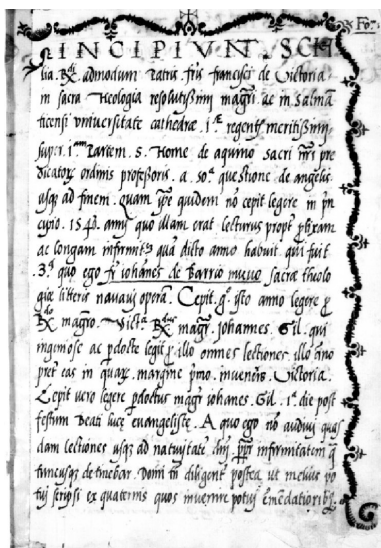 Fo.
INCIPIVNT. SCH
lia. Rdi admodum Patris fris francisci de Victoria.
in sacra Theologia resolutissimj magri ac in Salmã
ticensi vniuersitate cathedræ iæ regentis meritissimj
super. iam Partem. S. Thome de aquino sacri nri pre
dicatorum ordinis professoris. a. 50a questione de angelis
usqz ad finem. quam ipse quidem nõ cepit legere in prin
cipio. 1540. annj quo illam erat lecturus propter prolixam
ac longam infirmitatem quã dicto anno habuit. qui fuit
3us quo ego fr. iohãnes de Barrio nueuo sacræ theolo
giæ litteris nauaui operã. Cepit. g. isto anno legere pro
Rdo magro. Victa Rdus magr. johannes. Gil. qui
ingeniose ac perdocte legit pro illo omnes lectiones illo ãno
preter eas in quarum margine primo. inuenies. Victoria.
Cepit vero legere perdoctus magr iohanes. Gil. 1o die post
festum Beati lucę euangelistę. A quo ego nõ audiuj quas
dam lectiones usqz ad natiuitatẽ dnj. propter infirmitatem qua
tuncusqz detinebar. Domi tñ diligenter postea ut melius po
tuj scripsi ex quaternis quos inuenire potuj emẽdatioribus.
G